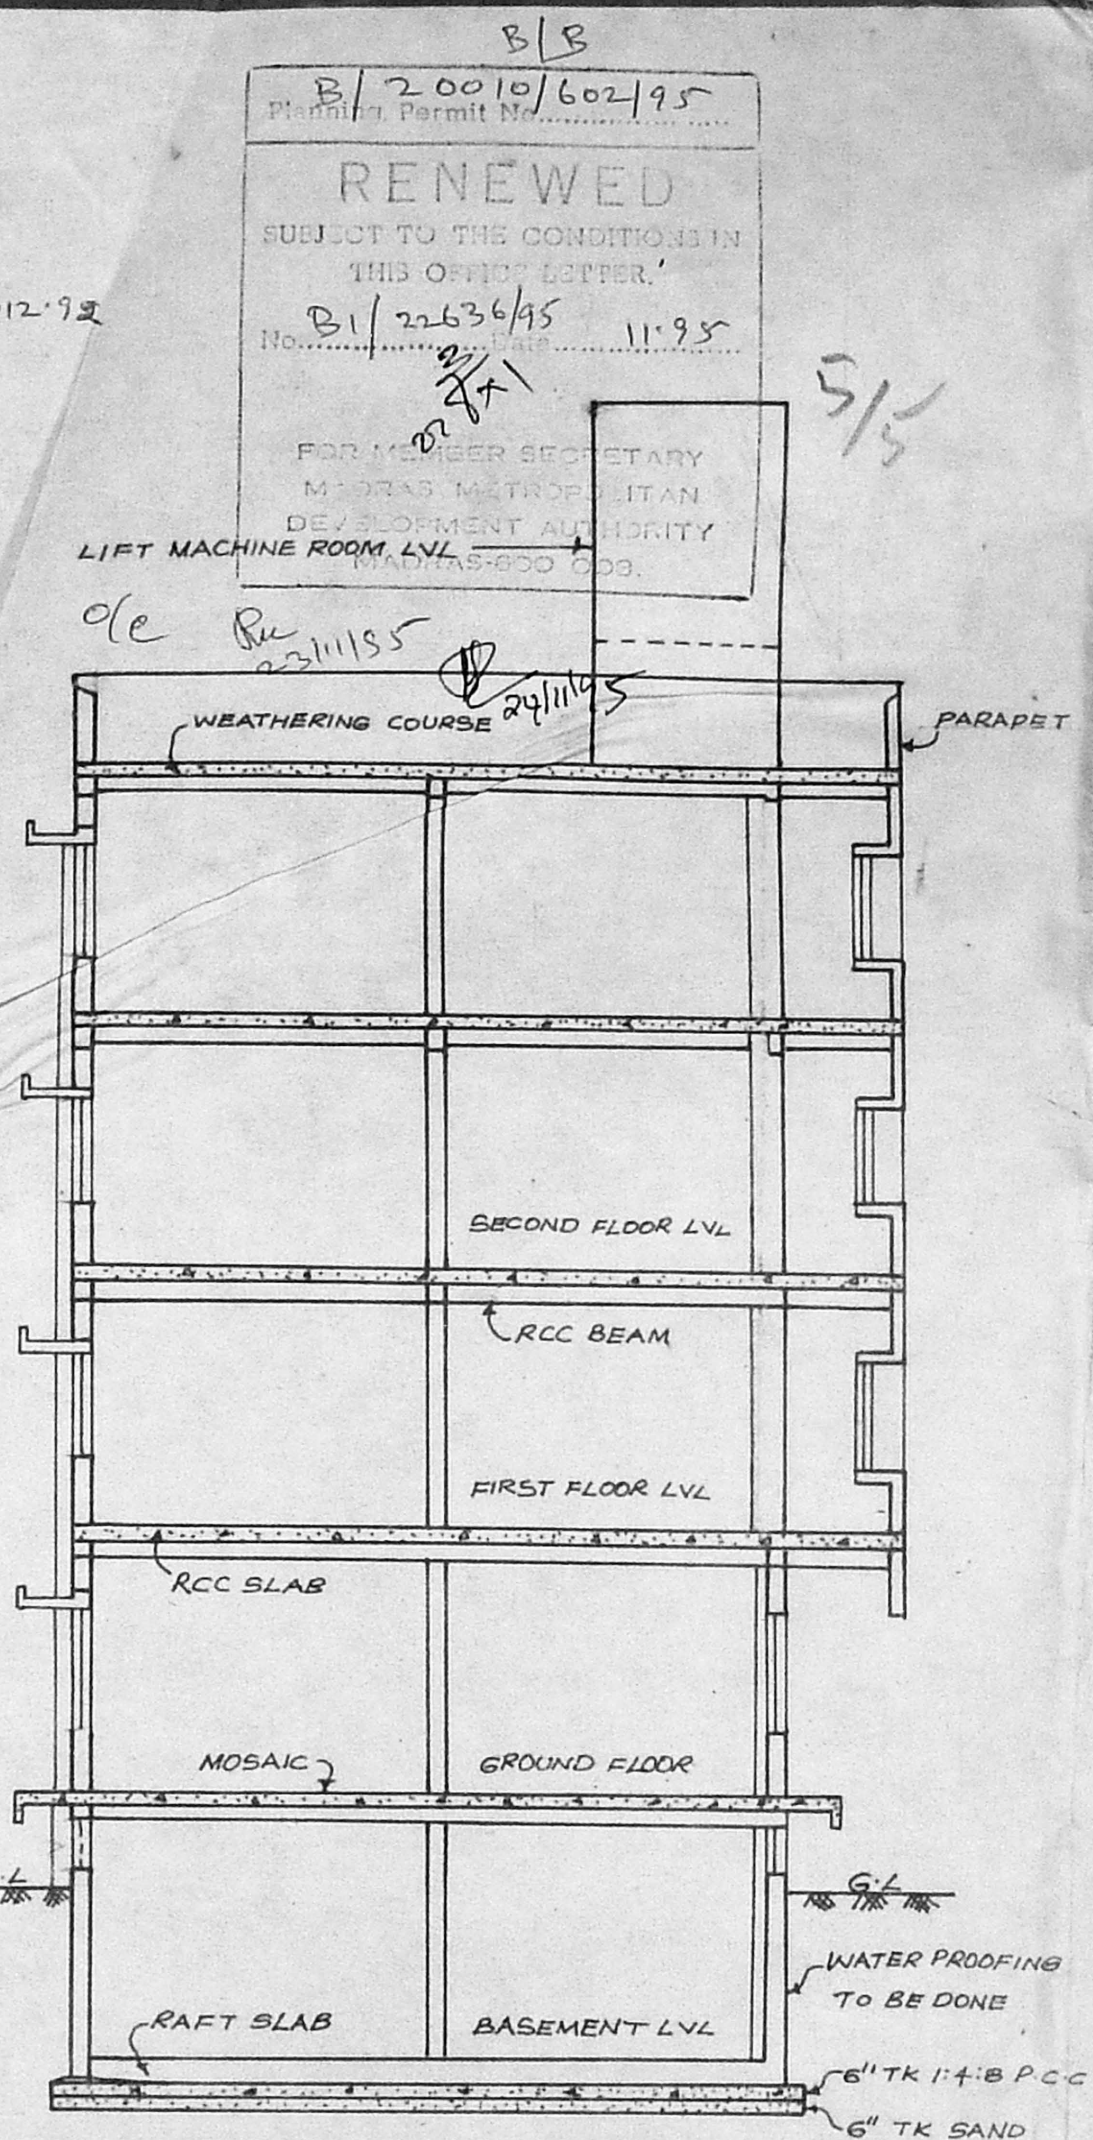 B/B
B/20010/602/95
Planning Permit No
RENEWED
SUBJECT TO THE CONDITIONS IN
THIS OFFICE LETTER.
No. B1/22636/95 Date 11.95
12.92
5/5
FOR MEMBER SECRETARY
MADRAS METROPOLITAN
DEVELOPMENT AUTHORITY
MADRAS-600 008.
LIFT MACHINE ROOM LVL
O/C
23/11/95
24/11/95
WEATHERING COURSE
PARAPET
SECOND FLOOR LVL
RCC BEAM
FIRST FLOOR LVL
RCC SLAB
MOSAIC
GROUND FLOOR
G.L
WATER PROOFING
TO BE DONE
RAFT SLAB
BASEMENT LVL
6" TK 1:4:8 P.C.C
6" TK SAND